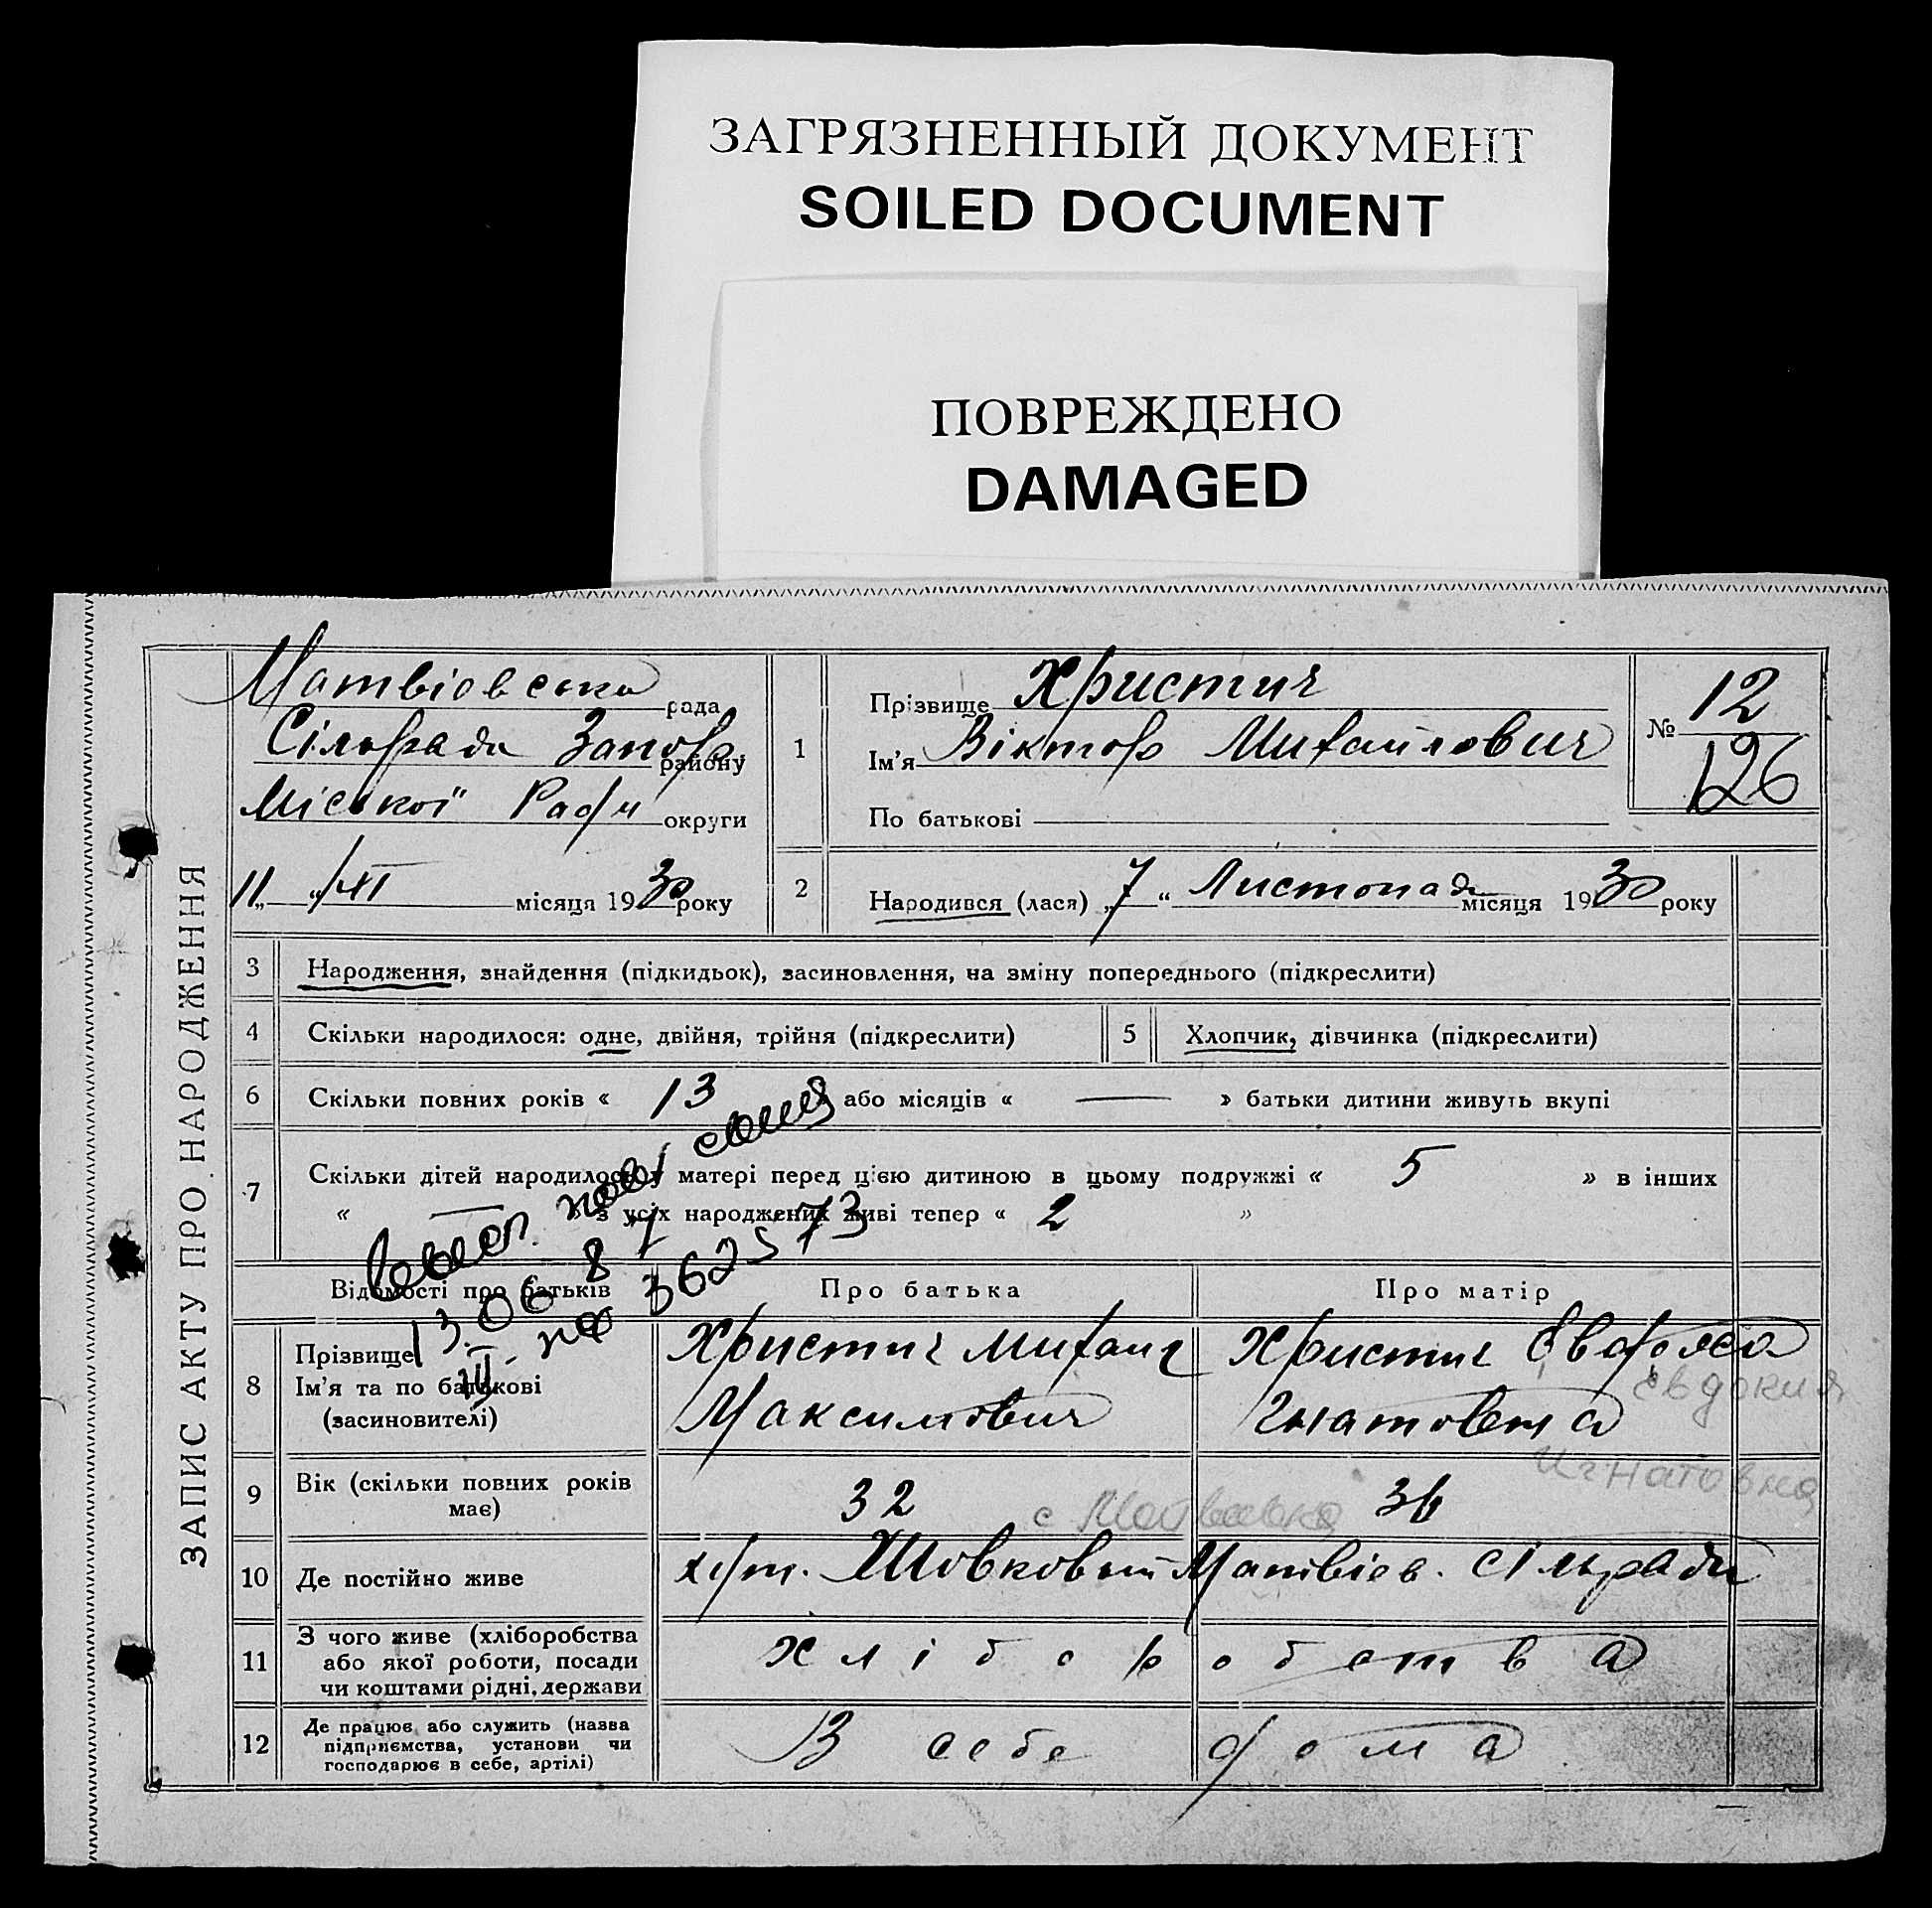 ЗАГРЯЗНЕННЫЙ ДОКУМЕНТ
SOILED DOCUMENT
ПОВРЕЖДЕНО
DAMAGED
ЗАПИС АКТУ ПРО НАРОДЖЕННЯ
Матвіевська рада
Сільради Запор. району
Міської Ради округи
„11“ /XI місяця 1930 року
1
Прізвище Христич
Ім'я Віктор Михайлович
По батькові
№ 12
126
2
Народився (лася) „7“ Листопада місяця 1930 року
3 Народження, знайдення (підкидьок), засиновлення, на зміну попереднього (підкреслити)
4 Скільки народилося: одне, двійня, трійня (підкреслити)
5 Хлопчик, дівчинка (підкреслити)
6 Скільки повних років « 13 » або місяців « — » батьки дитини живуть вкупі
7 Скільки дітей народилось у матері перед цією дитиною в цьому подружжі « 5 » в інших
« — » з усіх народжених живі тепер « 2 »
13.06.87
III 362573
Відомості про батьків
Про батька
Про матір
8 Прізвище
Ім'я та по батькові
(засиновителі)
Христич Михаил
Максимович
Христич
Гнатовна
Евдокия
Игнатовна
9 Вік (скільки повних років
має)
32
36
с Матвеевка
10 Де постійно живе
хут. Шовковый Матвіев. сільради
11 З чого живе (хліборобства
або якої роботи, посади
чи коштами рідні, держави
хліборобства
12 Де працює або служить (назва
підприємства, установи чи
господарює в себе, артілі)
В себе дома